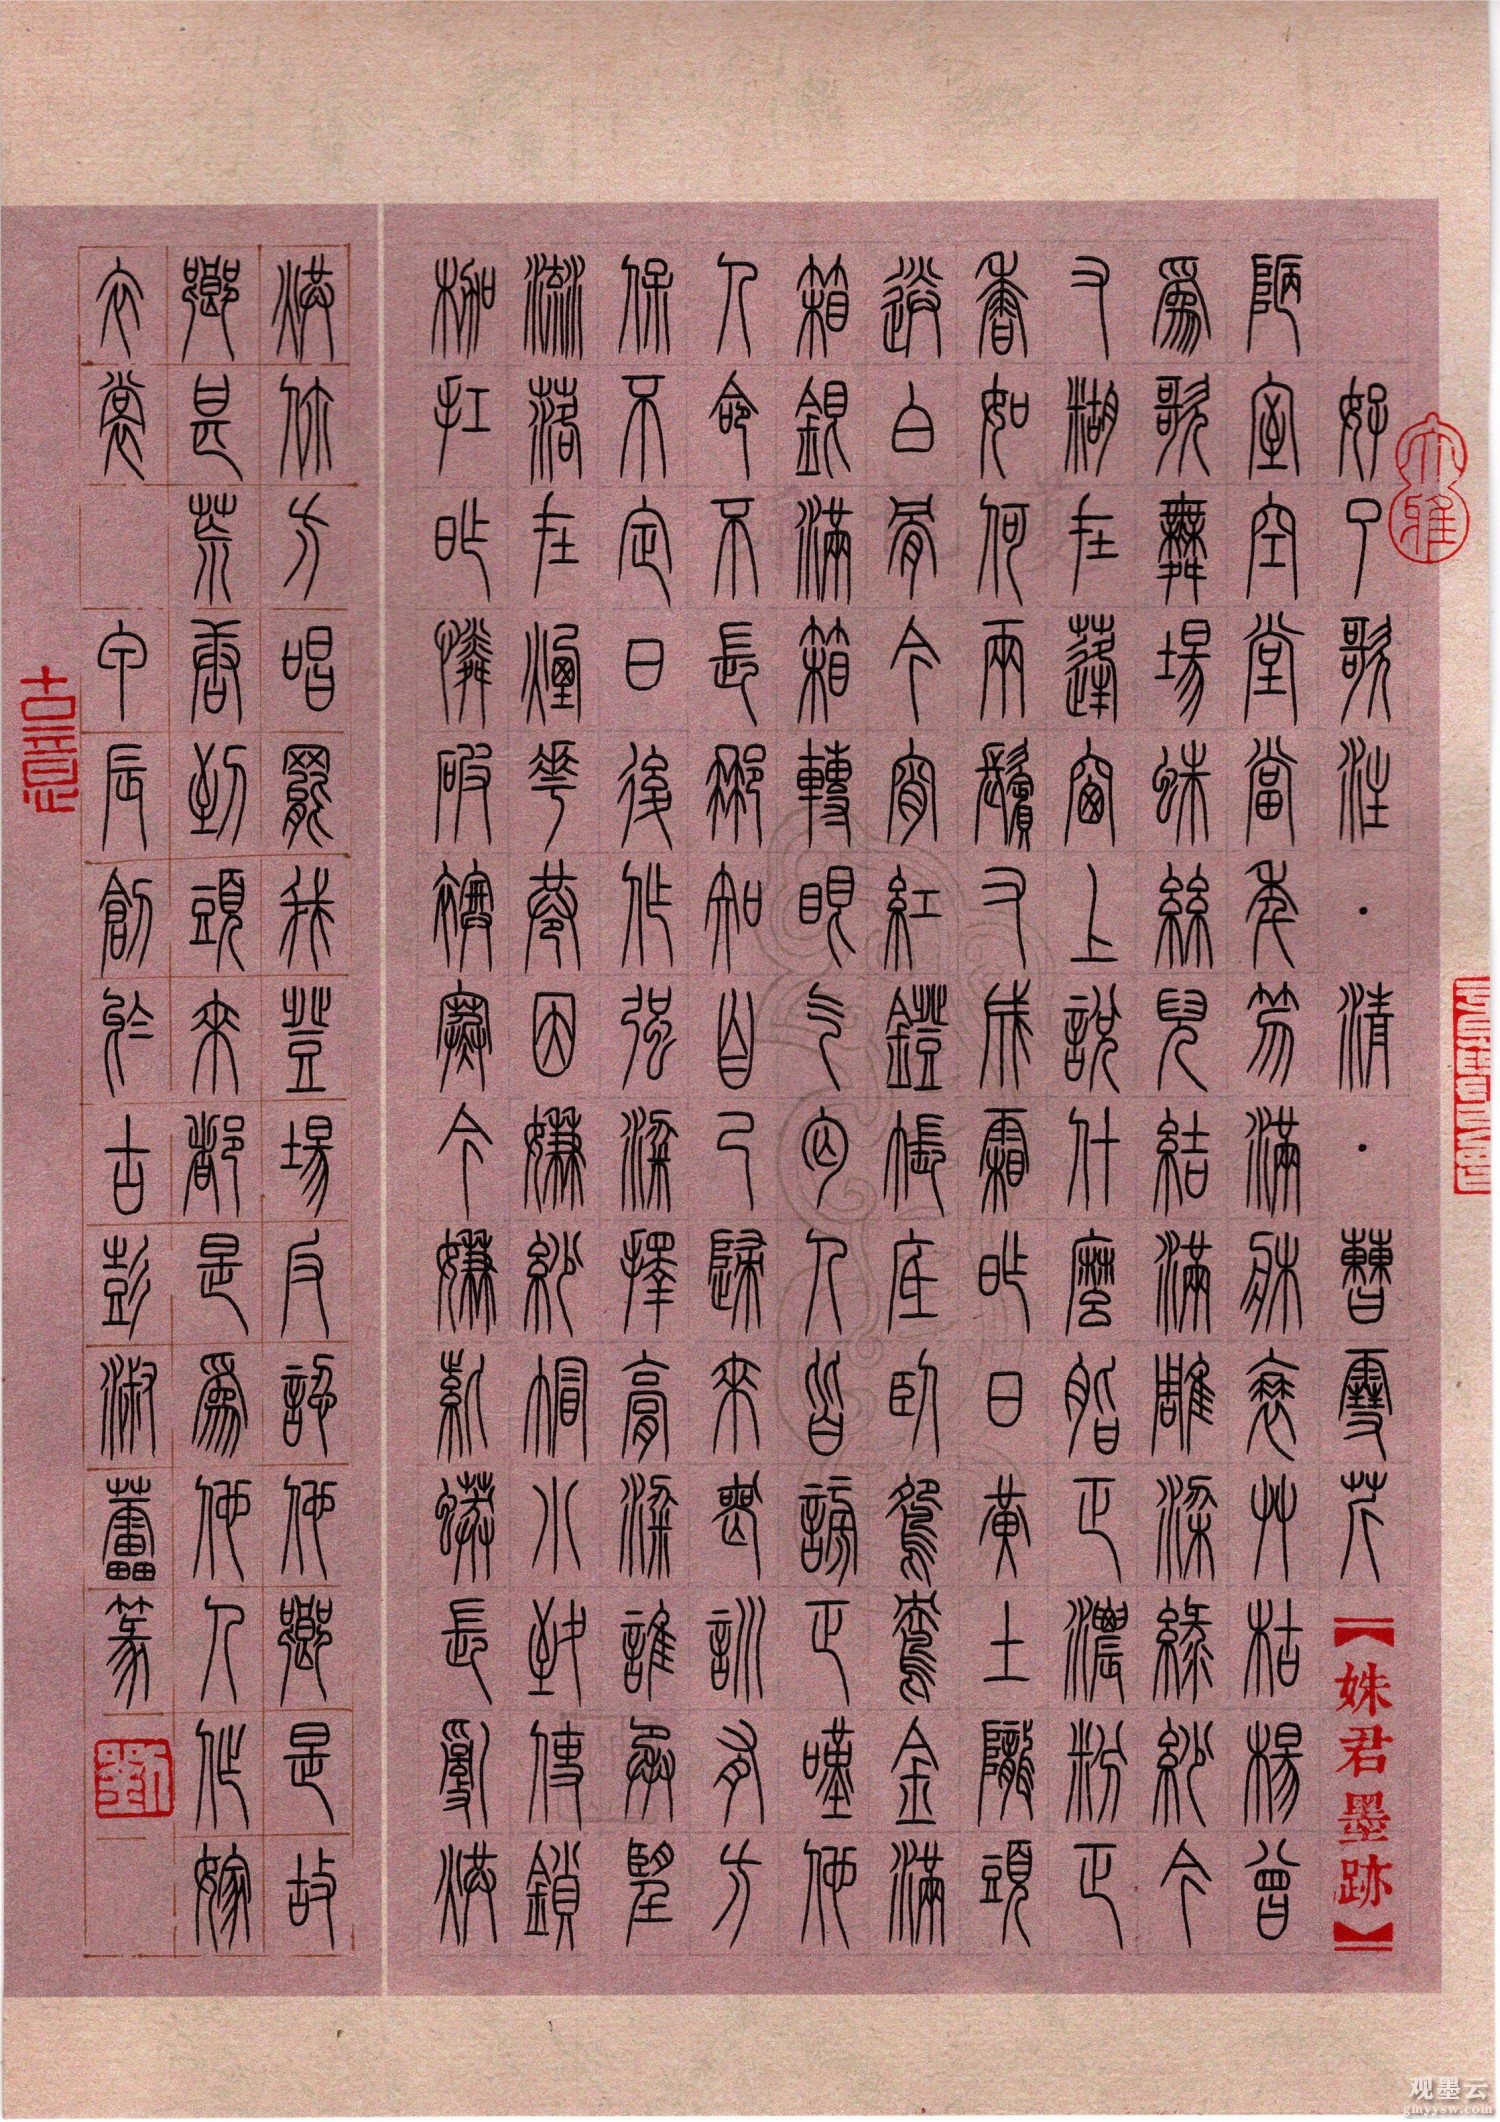 好了歌注·清·曹雪芹【姝君墨跡】
陋室空堂當年笏滿牀衰艸枯楊曾
爲歌舞場蛛絲兒結滿雕梁綠紗今
又糊在蓬窗上說什麼脂正濃粉正
香如何兩鬢又成霜昨日黃土隴頭
送白骨今宵紅鐙帳底臥鴛鴦金滿
箱銀滿箱轉眼乞丐人皆謗正嘆他
人命不長那知自己歸來喪訓有方
保不定日後作強梁擇膏粱誰承望
流落在煙花巷因嫌紗帽小致使鎖
枷扛昨憐破襖寒今嫌紫蟒長亂烘
烘你方唱罷我登場反認他鄉是故
鄉甚荒唐到頭來都是爲他人作嫁
衣裳 甲辰創於古彭淑蕾篆
大雅
观墨云
gmyysw.com